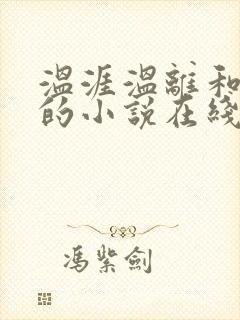 温涯温離和
的小說在綫
馮紫劍